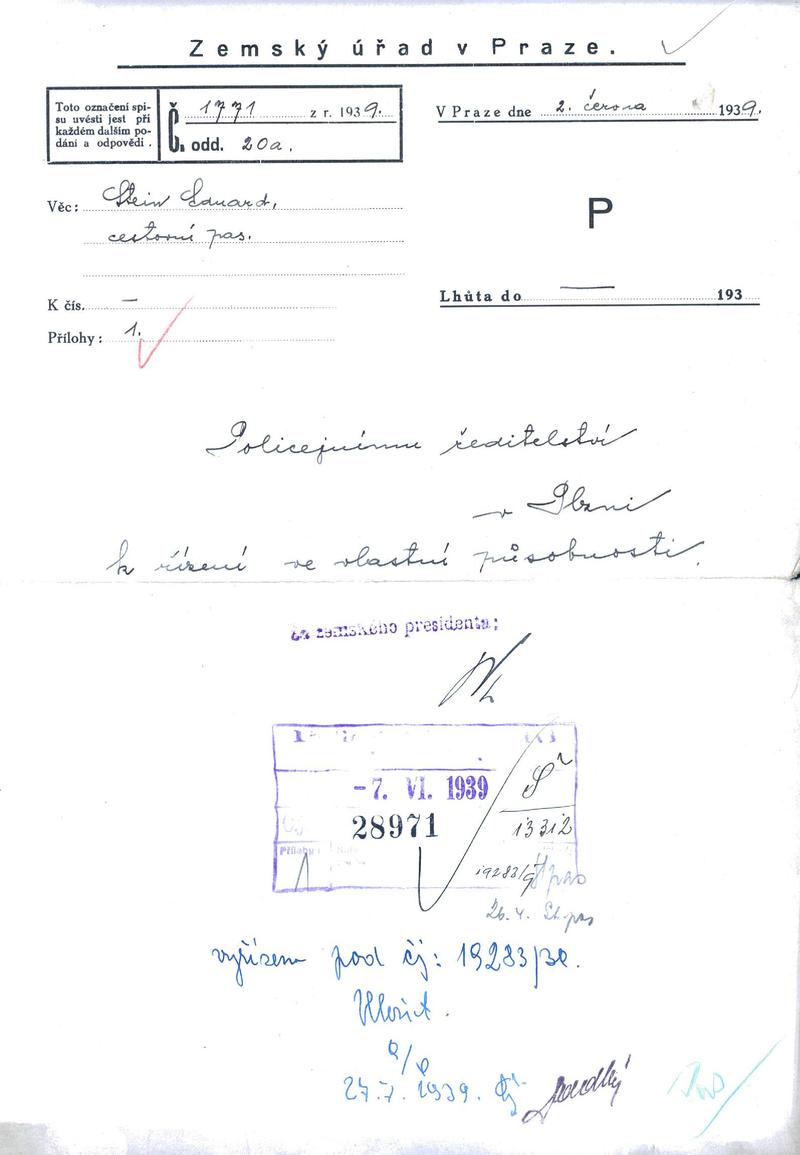 Zemský úřad v Praze.
Toto označení spi-
su uvésti jest při
každém dalším po-
dání a odpovědi.
Č. 1771 z r. 1939.
Č. odd. 20a.
V Praze dne 2. června 1939.
Věc: Stein Eduard,
cestovní pas.
P
K čís. —
Lhůta do — 193
Přílohy: 1.
Policejnímu ředitelství
v Plzni
k řízení ve vlastní působnosti.
Za zemského presidenta:
-7. VI. 1939
S
28971
13312
Přílohy
1
19283/9
pas
26. 4. St. pas
vyřízeno pod čj: 19283/38.
27.7. 1939.